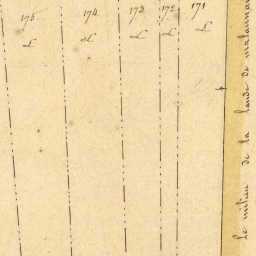 175 174 173 172 171
L L L L L
Le milieu de la lande de